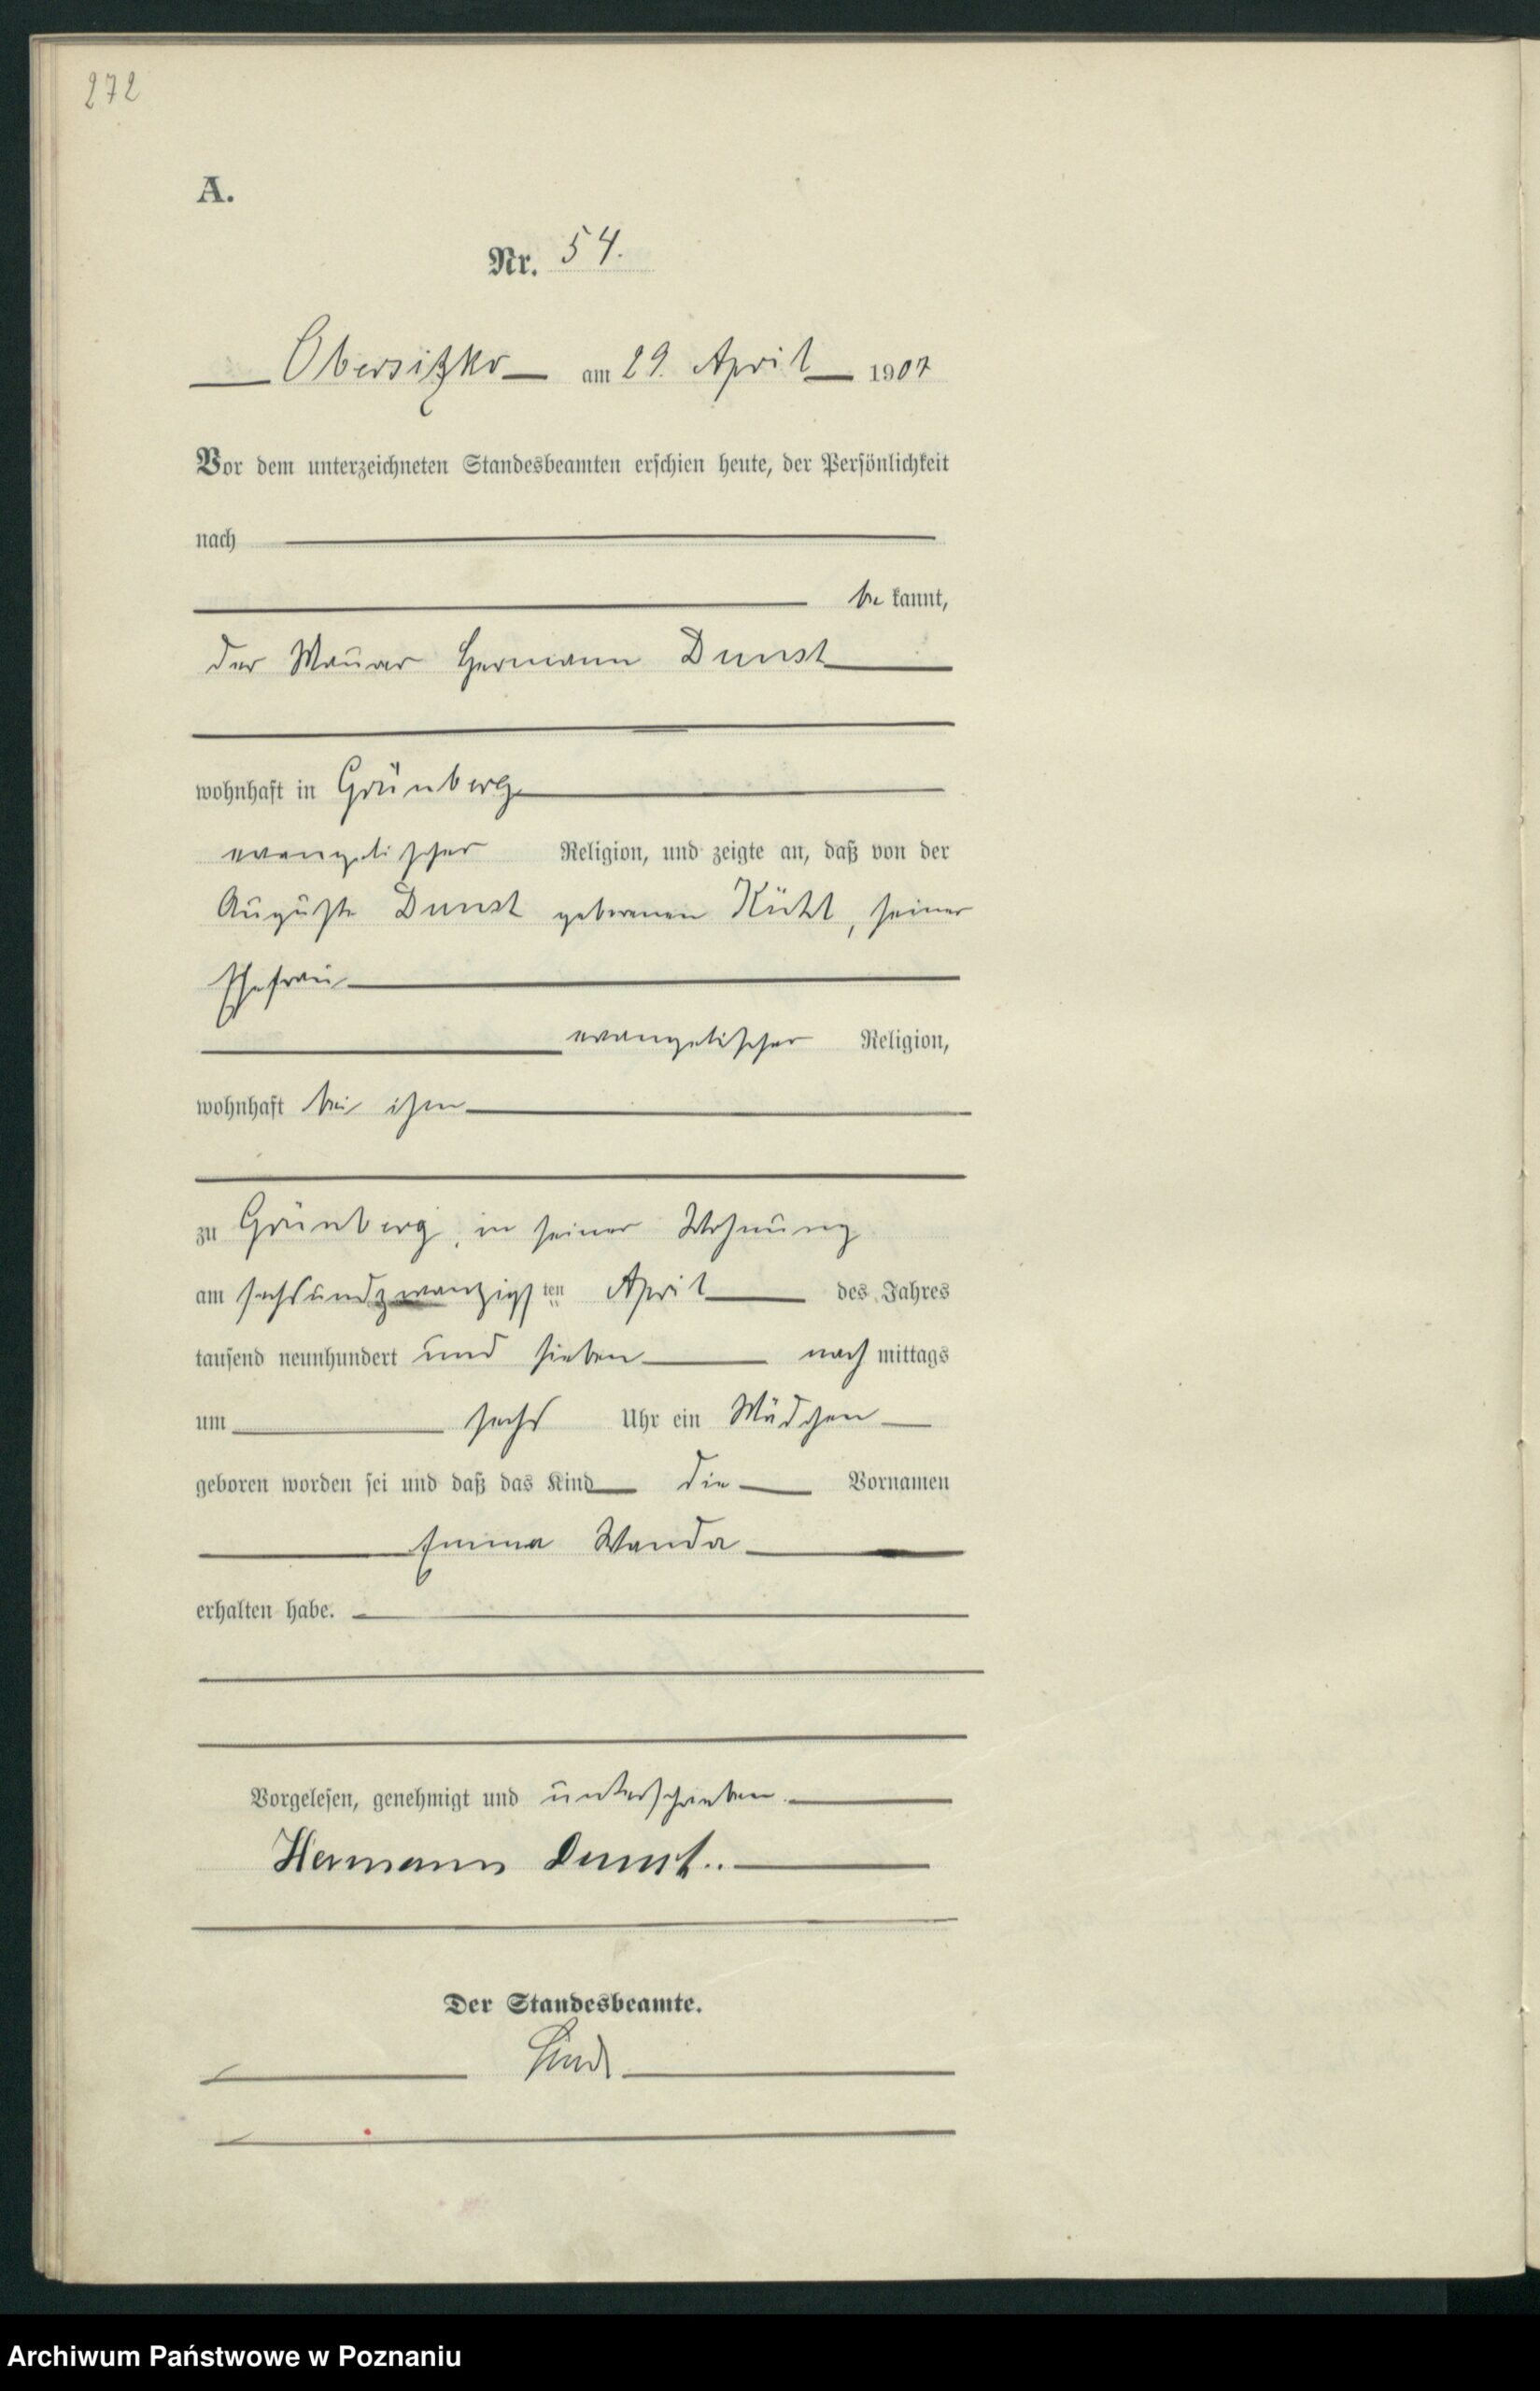 272
A.
Nr. 54.
Obersitzko am 29. April 1907
Vor dem unterzeichneten Standesbeamten erschien heute, der Persönlichkeit
nach
be kannt,
der Maurer Hermann Dunst
wohnhaft in Grünberg
evangelischer Religion, und zeigte an, daß von der
Auguste Dunst geborenen Kühl, seiner
Ehefrau
evangelischer Religion,
wohnhaft bei ihm
zu Grünberg, in seiner Wohnung
am sechsundzwanzigsten April des Jahres
tausend neunhundert und sieben nach mittags
um sechs Uhr ein Mädchen
geboren worden sei und daß das Kind die Vornamen
Emma Wanda
erhalten habe.
Vorgelesen, genehmigt und unterschrieben.
Hermann Dunst..
Der Standesbeamte.
Archiwum Państwowe w Poznaniu